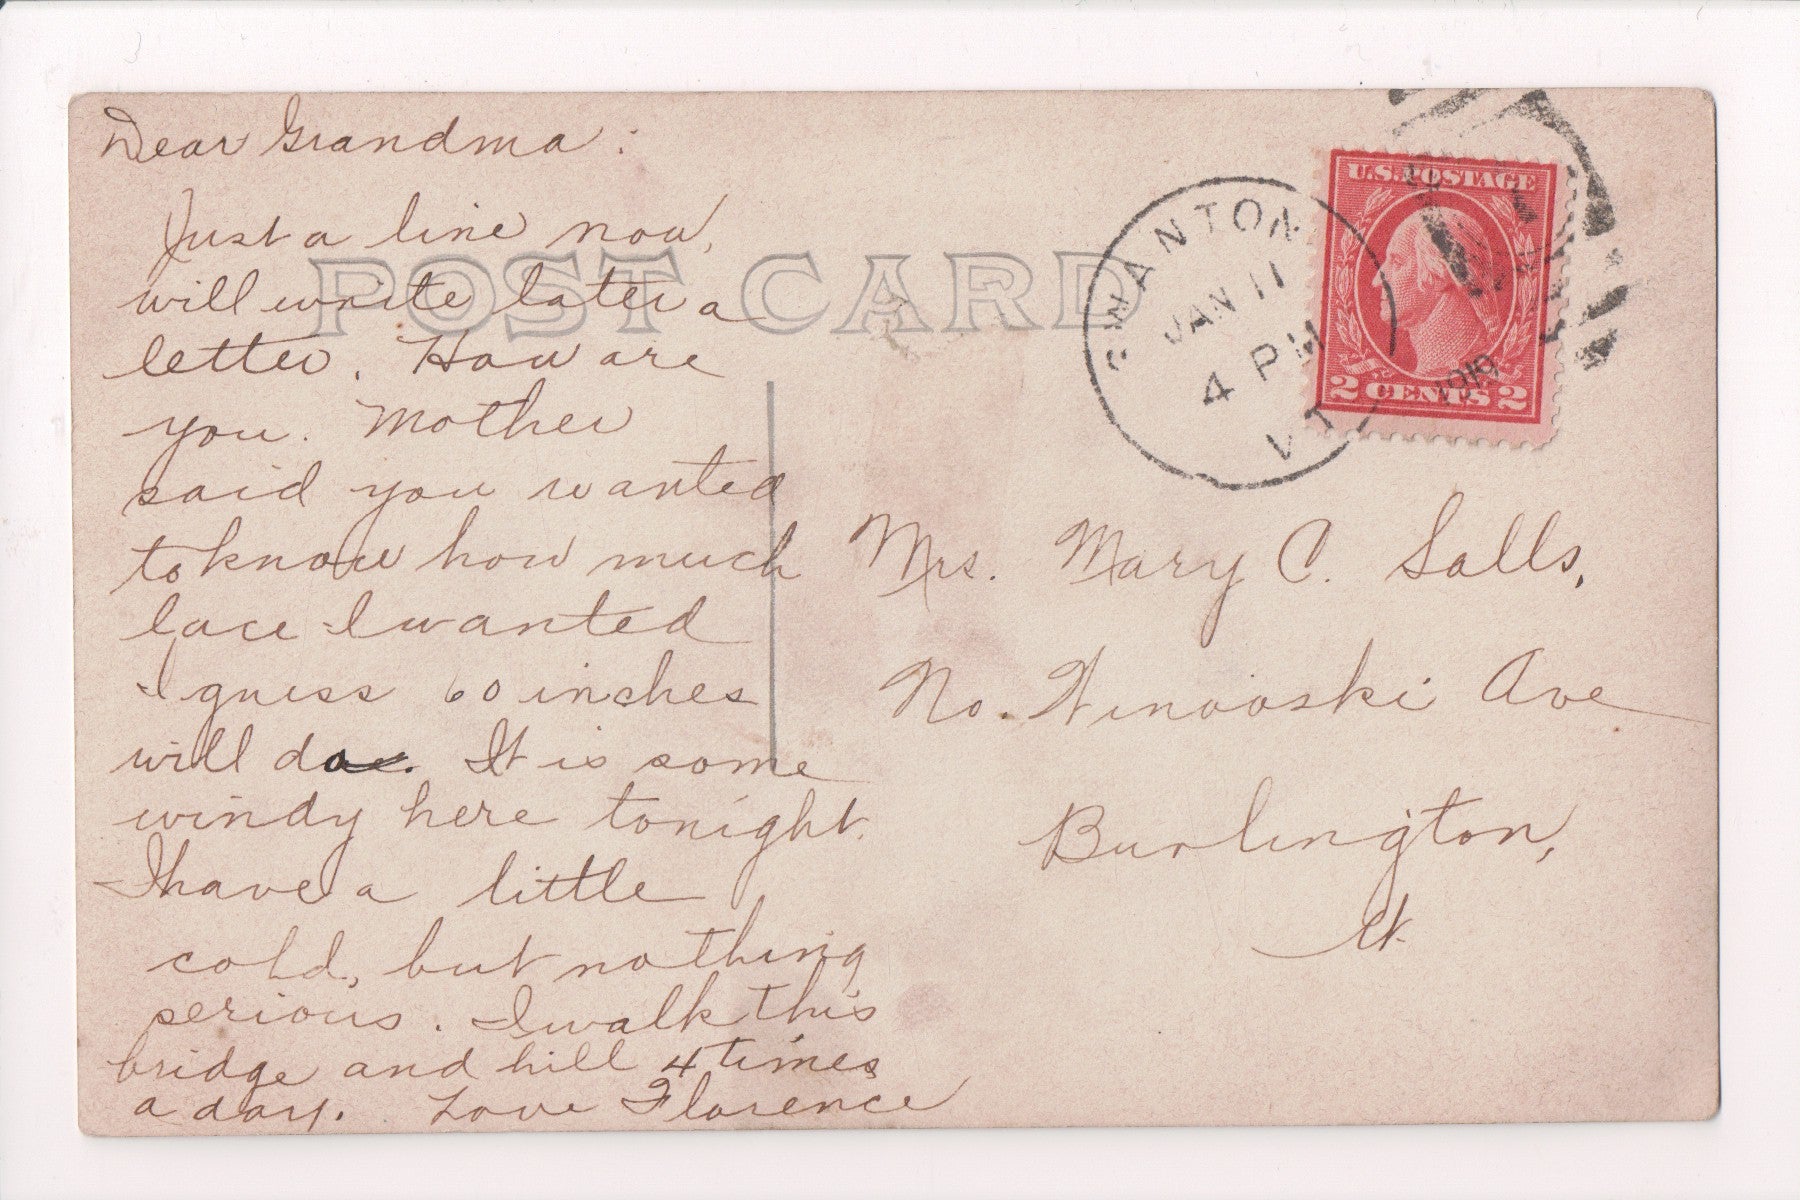 Dear Grandma:
Just a line now,
will write later a
letter. How are
you. Mother
said you wanted
to know how much
lace I wanted
I guess 60 inches
will do. It is some
windy here tonight.
I have a little
cold, but nothing
serious. I walk this
bridge and hill 4 times
a day. Love Florence
POST CARD
SWANTON
JAN 11
4 PM
1919
VT.
U.S. POSTAGE
2 CENTS 2
Mrs. Mary C. Salls,
No. Winooski Ave
Burlington,
Vt.